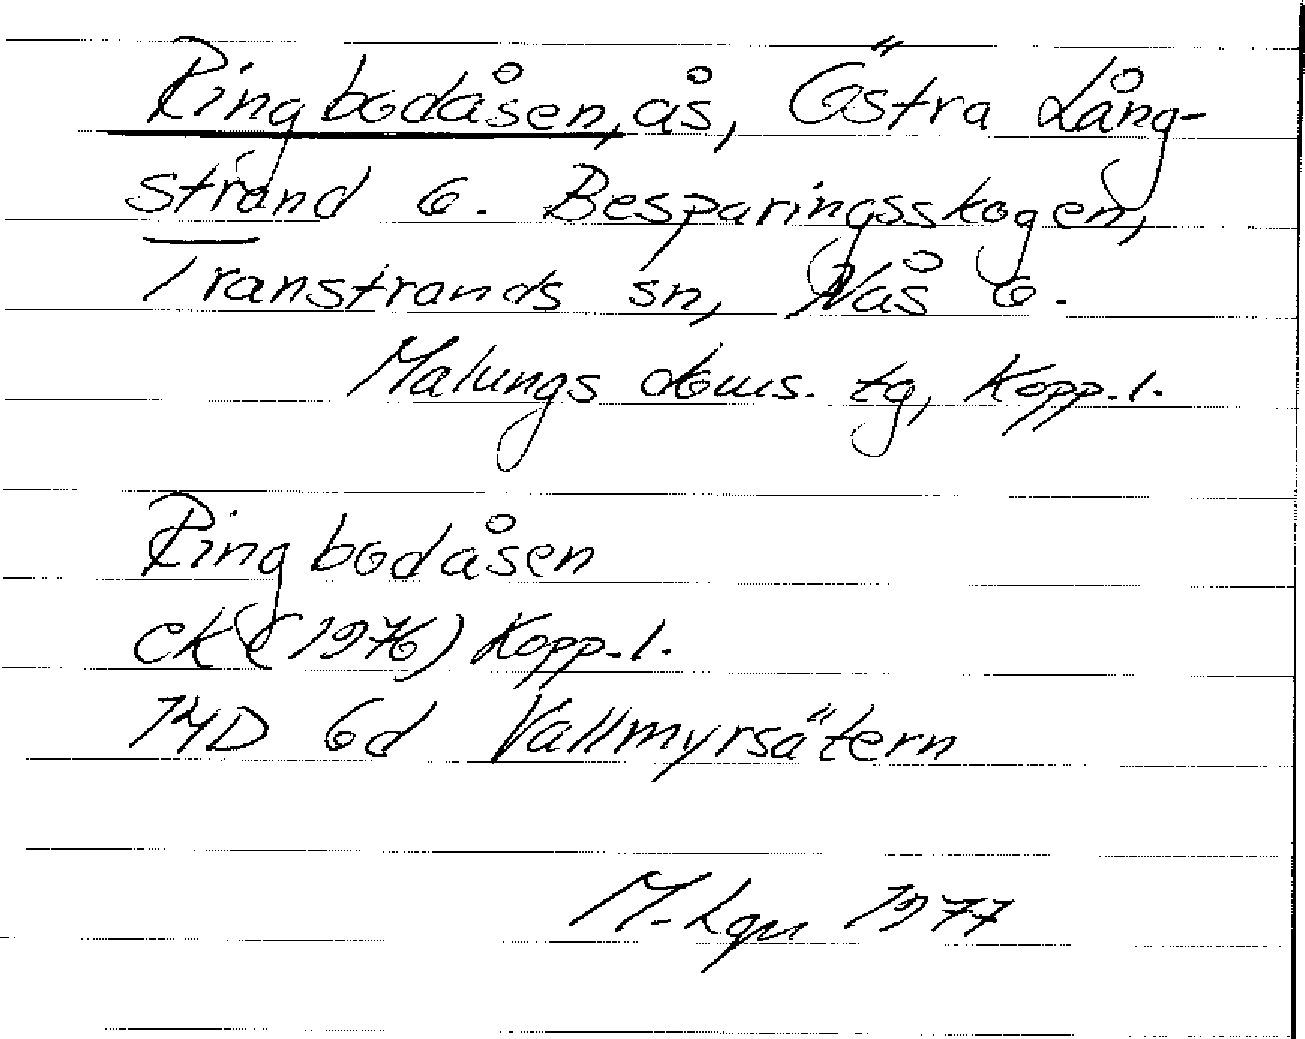 Ringbodåsen, ås, Östra Lång-
strand o. Besparingsskogen,
Transtrands sn, Nås o.
Malungs doms. tg, Kopp. l.
Ringbodåsen
ek (1976) Kopp. l.
14D 6d Vallmyrsätern
M. Lgn 1977